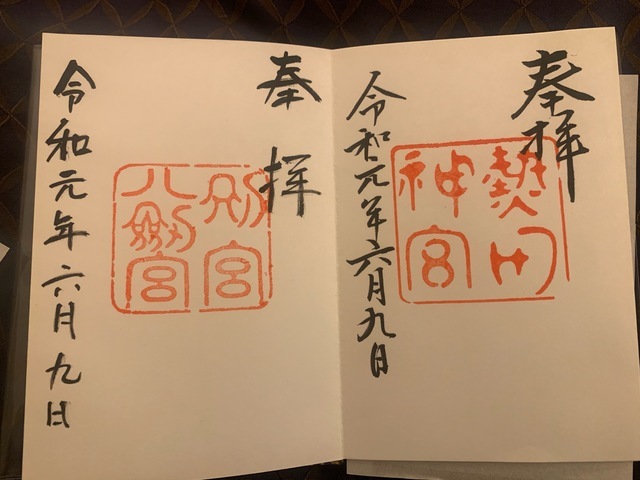 奉拝
熱田
神宮
令和元年六月九日
奉拝
別宮
八劔宮
令和元年六月九日